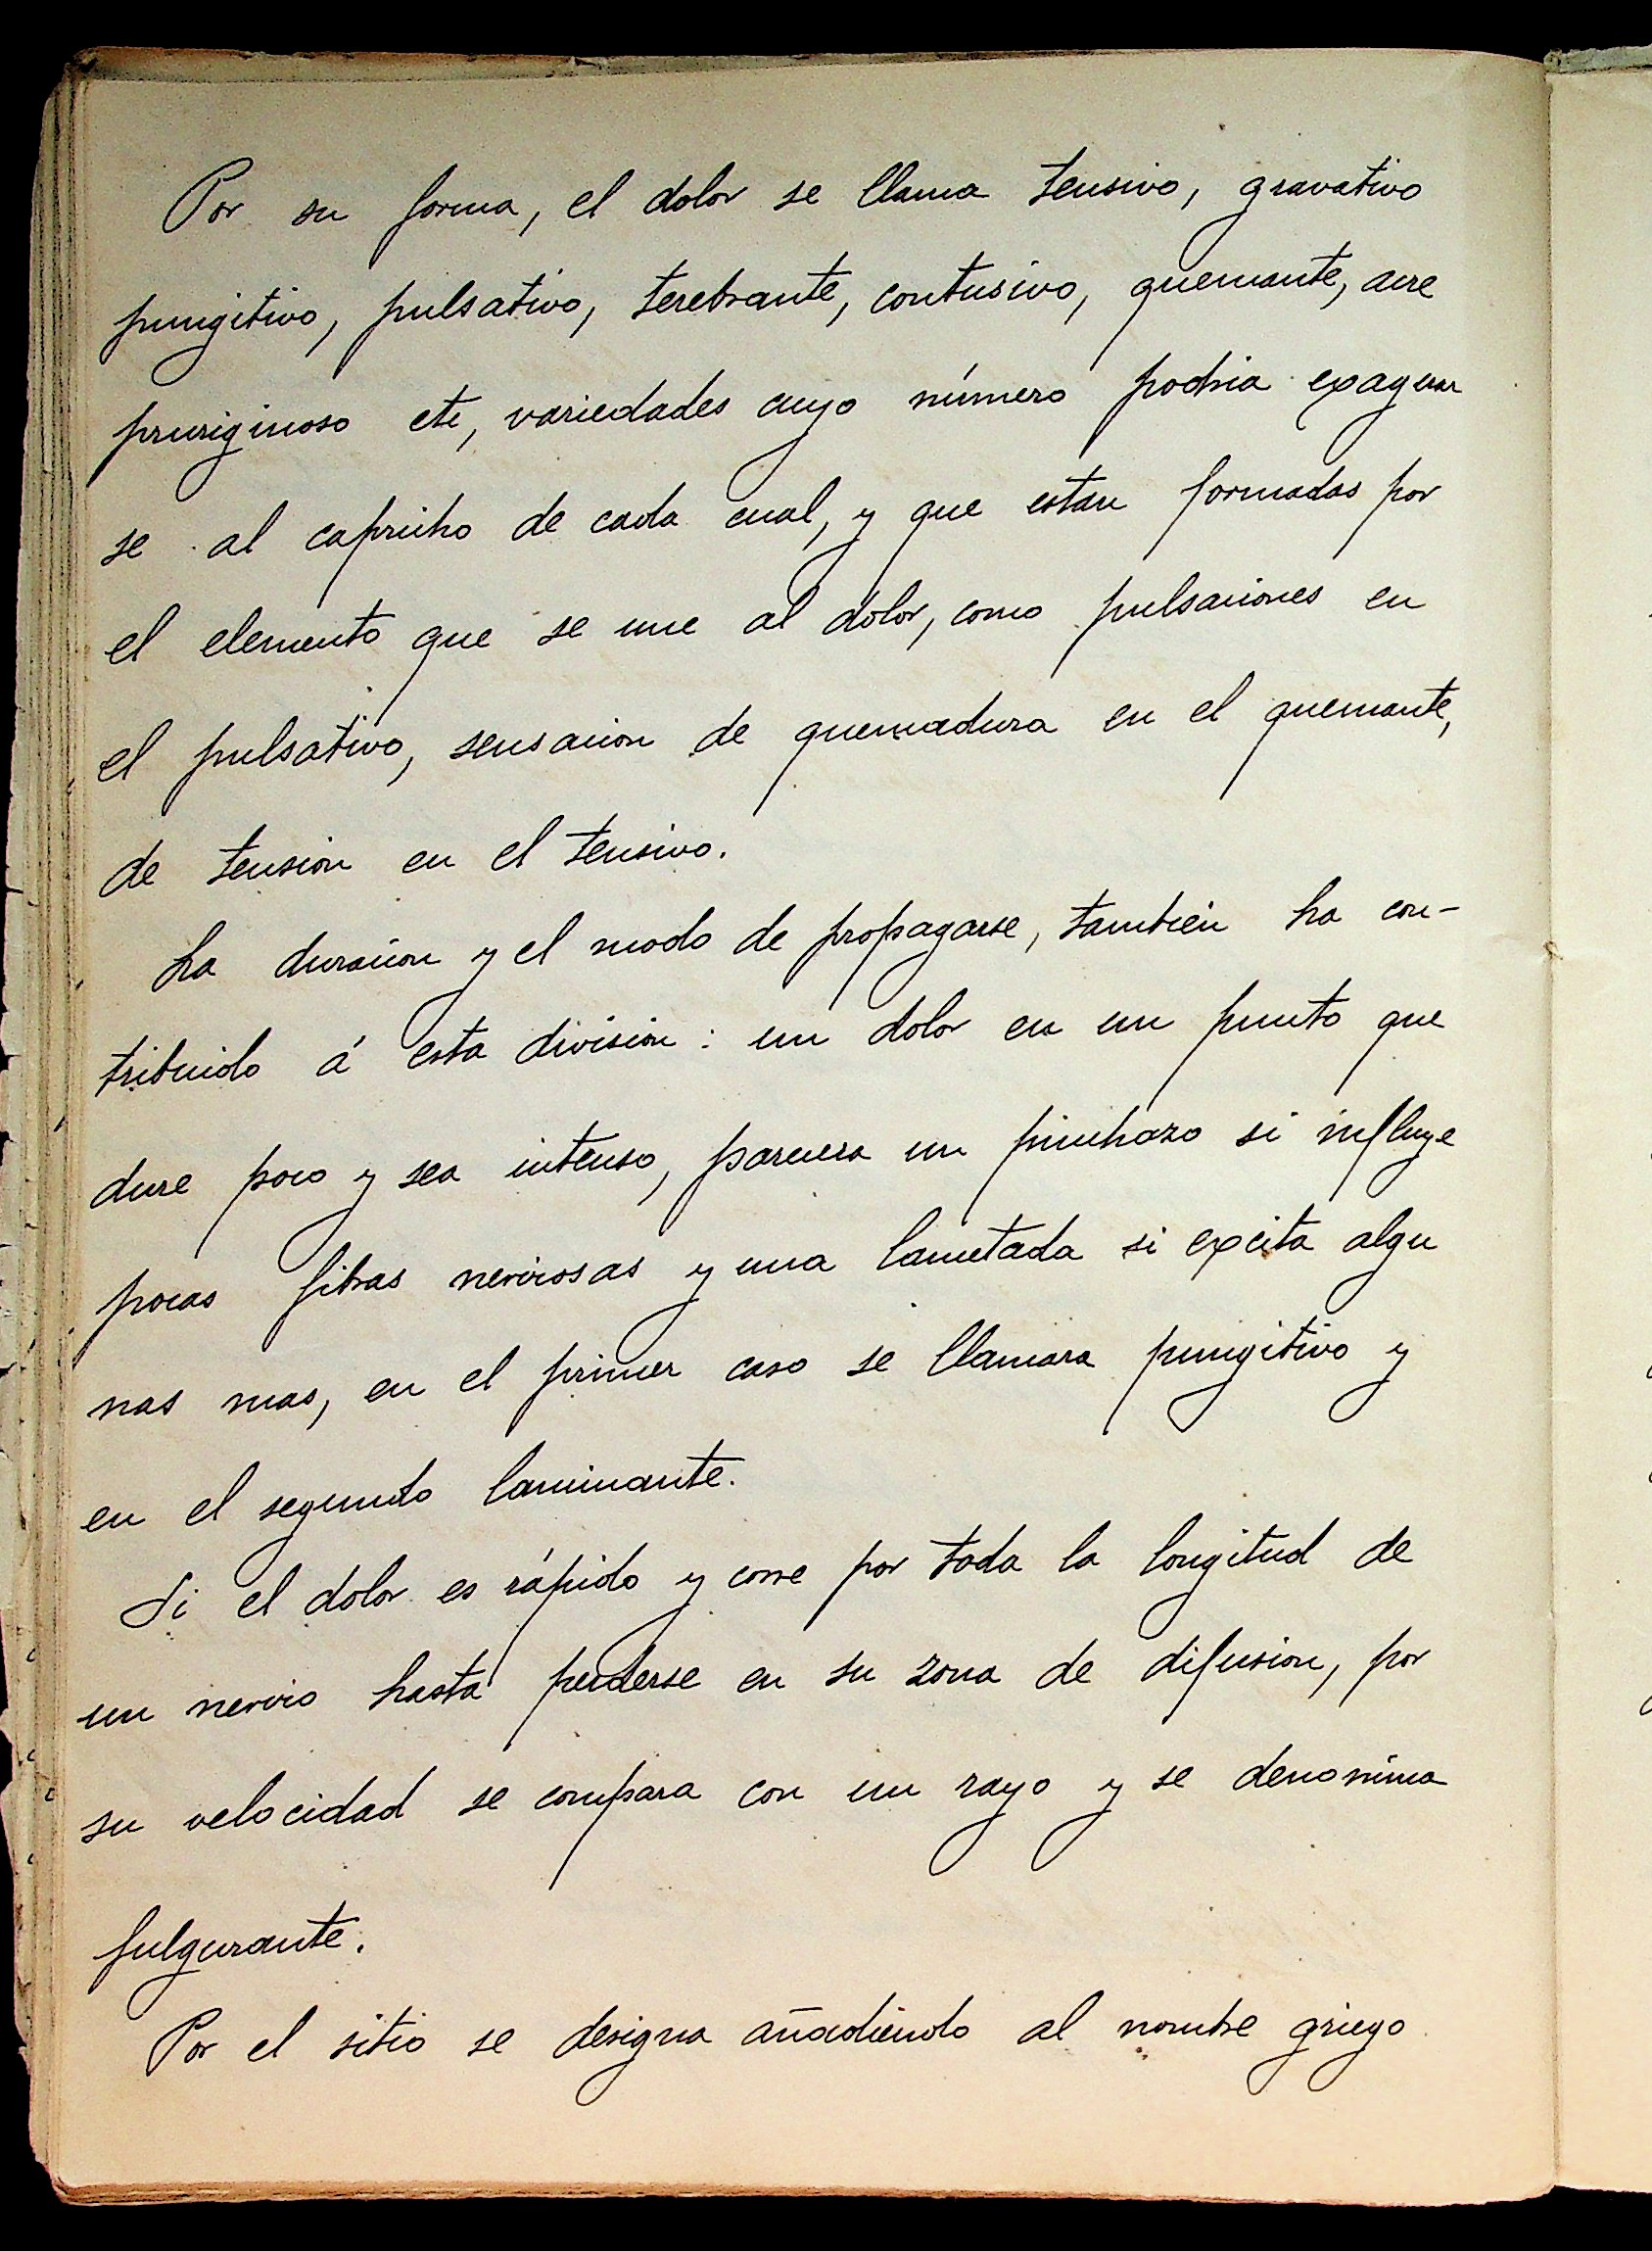 Por su forma, el dolor se llama tensivo, gravativo
pungitivo, pulsativo, terebrante, contusivo, quemante, acre
pruriginoso etc, variedades cuyo número podria exagerar
se al capricho de cada cual, y que estan formadas por
el elemento que se une al dolor, como pulsaciones en
el pulsativo, sensacion de quemadura en el quemante,
de tension en el tensivo.
La duracion y el modo de propagarse, también ha con-
tribuido á esta division: un dolor en un punto que
dure poco y sea intenso, parecera un pinchazo si influye
pocas fibras nerviosas y una lancetada si excita algu
nas mas, en el primer caso se llamara pungitivo y
en el segundo lancinante.
Si el dolor es rápido y corre por toda la longitud de
un nervio hasta perderse en su zona de difusion, por
su velocidad se compara con un rayo y se denomina
fulgurante.
Por el sitio se designa añadiendo al nombre griego